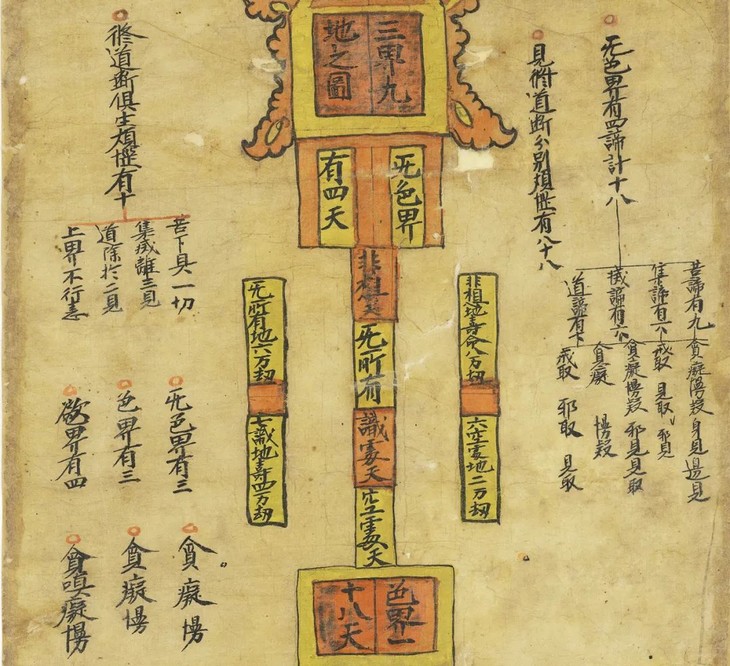 三界九
地之圖
无色界
有四天
非想天
无所有
識處天
空處天
色界一
十八天
无色界有四諦計十八
見修道斷分別煩惱有八十八
苦諦有九 貪癡慢疑 身見邊見
集諦有六 戒取 見取 邪見
滅諦有六 貪癡慢疑 邪見見取
貪癡 慢疑
道諦有 戒取 邪取 見取
非想地壽命八万劫
六空處地二万劫
无所有地六万劫
七識地壽四万劫
修道斷俱生煩惱有十
苦下具一切
集滅離三見
道除於二見
上界不行恚
无色界有三
色界有三
欲界有四
貪癡慢
貪癡慢
貪嗔癡慢